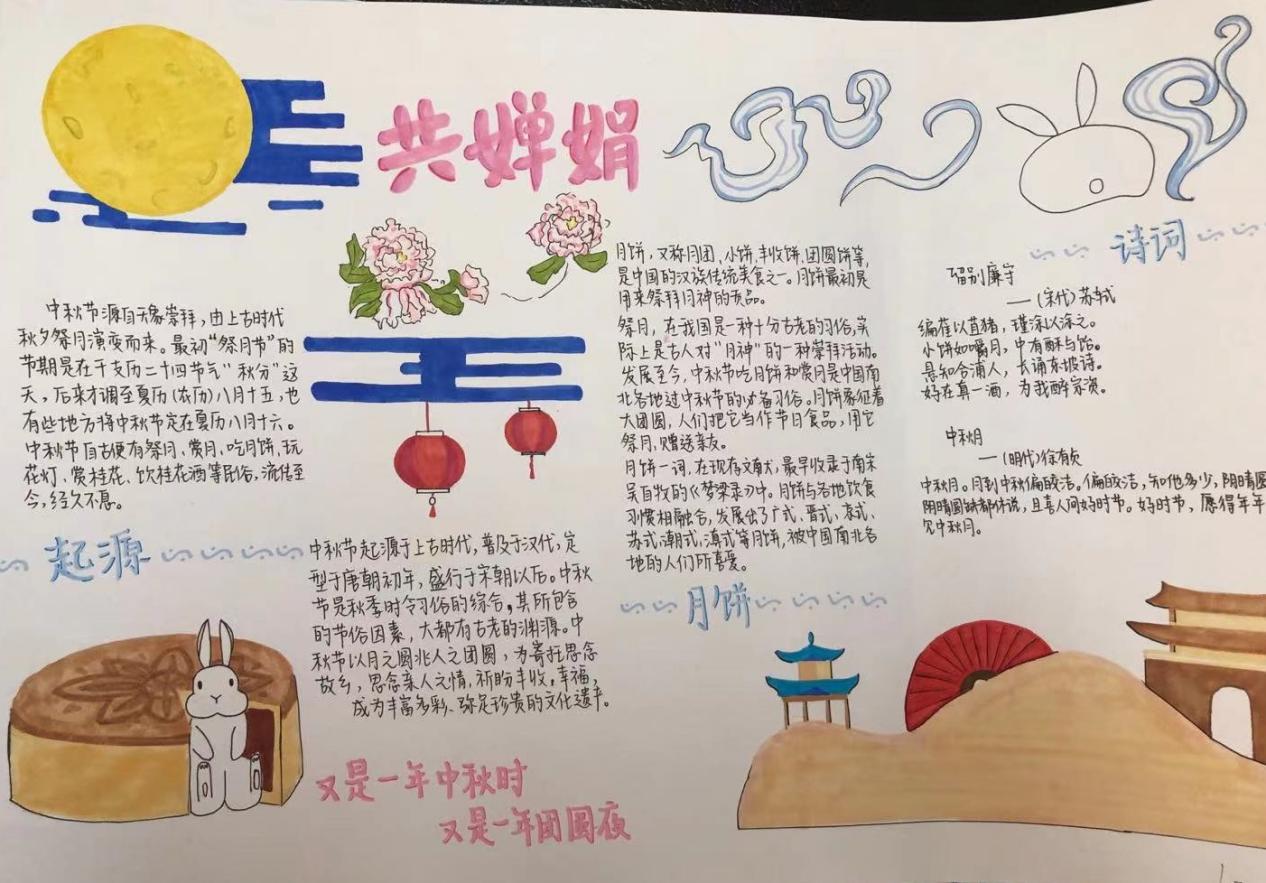 共婵娟
中秋节源自天象崇拜，由上古时代
秋夕祭月演变而来。最初“祭月节”的
节期是在干支历二十四节气“秋分”这
天，后来才调至夏历（农历）八月十五，也
有些地方将中秋节定在夏历八月十六。
中秋节自古便有祭月、赏月、吃月饼、玩
花灯、赏桂花、饮桂花酒等民俗，流传至
今，经久不息。
起源
中秋节起源于上古时代，普及于汉代，定
型于唐朝初年，盛行于宋朝以后。中秋
节是秋季时令习俗的综合，其所包含
的节俗因素，大都有古老的渊源。中
秋节以月之圆兆人之团圆，为寄托思念
故乡，思念亲人之情，祈盼丰收，幸福，
成为丰富多彩、弥足珍贵的文化遗产。
又是一年中秋时
又是一年团圆夜
月饼，又称月团、小饼、丰收饼、团圆饼等，
是中国的汉族传统美食之一。月饼最初是
用来祭拜月神的贡品。
祭月，在我国是一种十分古老的习俗，实
际上是古人对“月神”的一种崇拜活动。
发展至今，中秋节吃月饼和赏月是中国南
北各地过中秋节的必备习俗。月饼象征着
大团圆，人们把它当作节日食品，用它
祭月，赠送亲友。
月饼一词，在现存文献，最早收录于南宋
吴自牧的《梦梁录》中。月饼与各地饮食
习惯相融合，发展出了广式、晋式、京式、
苏式、潮式、滇式等月饼，被中国南北各
地的人们所喜爱。
月饼
诗词
留别廉守
——（宋代）苏轼
编萑以苴猪，瑾涂以涂之。
小饼如嚼月，中有酥与饴。
悬知合浦人，长诵东坡诗。
好在真一酒，为我醉宗资。
中秋月
——（明代）徐有贞
中秋月。月到中秋偏皎洁。偏皎洁，知他多少，阴晴圆
阴晴圆缺都休说，且喜人间好时节。好时节，愿得年年
见中秋月。